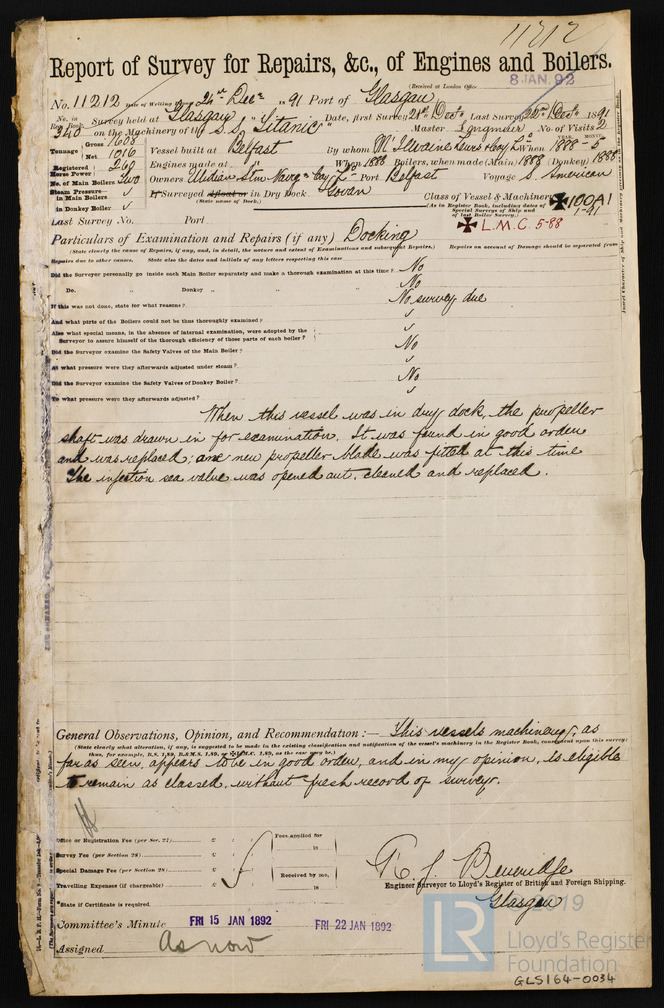 11212
Report of Survey for Repairs, &c., of Engines and Boilers.
(Received at London Office
8 JAN. 92
No. 11212 Date of Writing 24th Decr 1891 Port of Glasgow
No. in Reg. Book. 340 Survey held at Glasgow Date, first Survey 21st Decr Last Survey Decr 1891
on the Machinery of the S.S. "Titanic" Master No. of Visits 2
Tonnage Gross 1608 Net 1016 Vessel built at Belfast By whom McIlwaine Lewis & Coy Ld When 1888 - 5
Registered Horse Power 260 Engines made at " When 1888 Boilers, when made (Main) 1888 (Donkey) 1888
No. of Main Boilers Two Owners Ulidian Stm Navgn Coy Ld Port Belfast Voyage S. American
Steam Pressure in Main Boilers ✓ If Surveyed afloat or in Dry Dock Govan
(State name of Dock.)
in Donkey Boiler ✓
Class of Vessel & Machinery ✠100A1
(As in Register Book, including dates of Special Survey of Ship and of last Boiler Survey.) 1-91
✠ L.M.C. 5-88
Last Survey No. Port
Particulars of Examination and Repairs (if any) Docking
(State clearly the cause of Repairs, if any, and, in detail, the nature and extent of Examinations and subsequent Repairs.) Repairs on account of Damage should be separated from
Repairs due to other causes. State also the dates and initials of any letters respecting this case
Did the Surveyor personally go inside each Main Boiler separately and make a thorough examination at this time? No
Do. Donkey " " " No
If this was not done, state for what reasons? No survey due
And what parts of the Boilers could not be thus thoroughly examined? ✓
Also what special means, in the absence of internal examination, were adopted by the
Surveyor to assure himself of the thorough efficiency of those parts of each boiler? ✓
Did the Surveyor examine the Safety Valves of the Main Boiler? No
At what pressure were they afterwards adjusted under steam? ✓
Did the Surveyor examine the Safety Valves of Donkey Boiler? No
To what pressure were they afterwards adjusted? ✓
When this vessel was in dry dock, the propeller
shaft was drawn in for examination. It was found in good order
and was replaced; one new propeller blade was fitted at this time
The injection sea valve was opened out, cleaned and replaced.
General Observations, Opinion, and Recommendation:— This vessels machinery, as
(State clearly what alteration, if any, is suggested to be made in the existing classification and notification of the vessel's machinery in the Register Book, consequent upon this survey;
thus, for example, B.S. 1,89, B.&M.S. 1,89, or ✠L.M.C. 1,89, as the case may be.)
far as seen, appears to be in good order, and in my opinion, is eligible
to remain as classed, without fresh record of survey.
Office or Registration Fee (per Sec. 27) £ : :
Survey Fee (per Section 28) £ : :
Special Damage Fee (per Section 28) £ : :
Travelling Expenses (if chargeable) £ : :
Fees applied for
18
Received by me,
18
*State if Certificate is required.
R. J. Beveridge
Engineer Surveyor to Lloyd's Register of British and Foreign Shipping.
Glasgow
Committee's Minute FRI 15 JAN 1892 FRI 22 JAN 1892
Assigned As now
© 2019
LR Lloyd's Register
Foundation
GLS164-0034